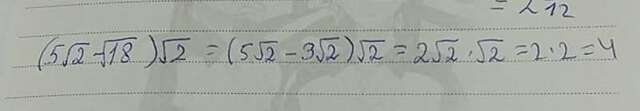 = 212
(5√2-√18)√2 = (5√2-3√2)√2 = 2√2·√2 = 2·2 = 4